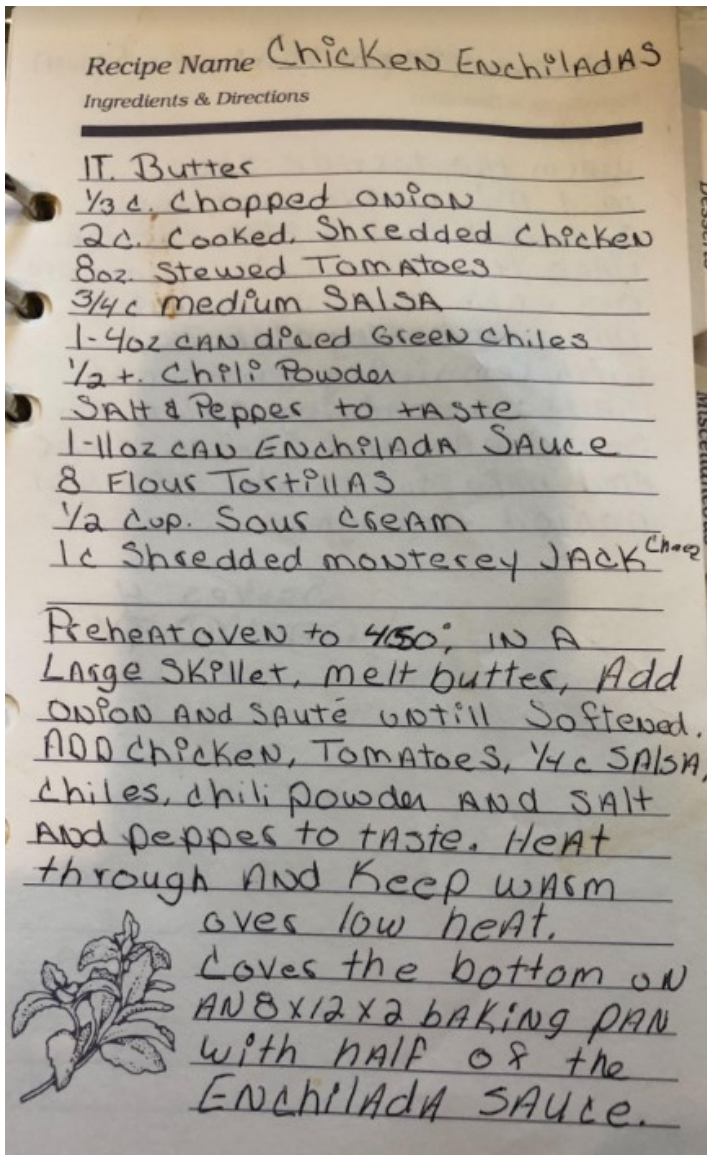 Recipe Name Chicken Enchiladas
Ingredients & Directions
1T. Butter
1/3 c. Chopped onion
2c. Cooked, Shredded Chicken
8oz. Stewed Tomatoes
3/4 c medium SALSA
1-4oz can diced Green Chiles
1/2 t. Chili Powder
Salt & Pepper to taste
1-11oz can Enchilada Sauce
8 Flour Tortillas
1/2 cup. Sour Cream
1c Shredded monterey JACK
Preheat oven to 450°, IN A
Large Skillet, melt butter, Add
onion and sauté untill Softened.
ADD Chicken, Tomatoes, 1/4 c SALSA,
chiles, chili powder and salt
And pepper to taste. Heat
through and Keep warm
over low heat.
Cover the bottom on
AN 8x12x2 baking pan
with half of the
Enchilada sauce.
Desserts
Miscellaneous